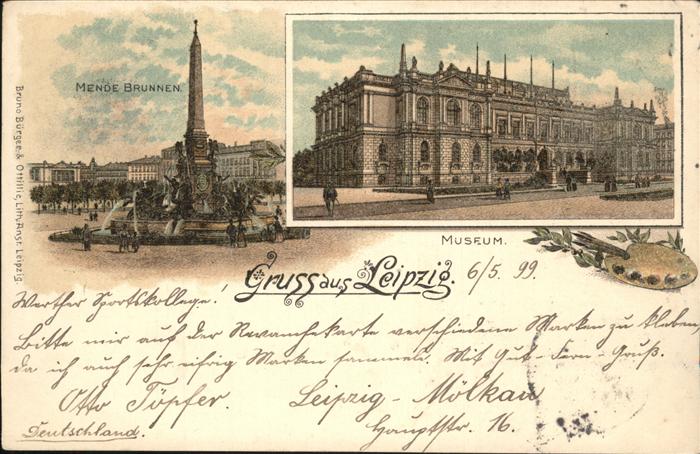 MENDE BRUNNEN.
Bruno Bürger & Ottillie, Lith. Anst. Leipzig.
MUSEUM.
Gruss aus Leipzig. 6/5. 99.
Werther Sportskollege!
Bitte mir auf der Revanchekarte verschiedene Marken zu kleben,
da ich auch sehr eifrig Marken sammele. Mit Gut-Fern-Gruß.
Otto Töpfer. Leipzig-Mölkau
Deutschland. Hauptstr. 16.